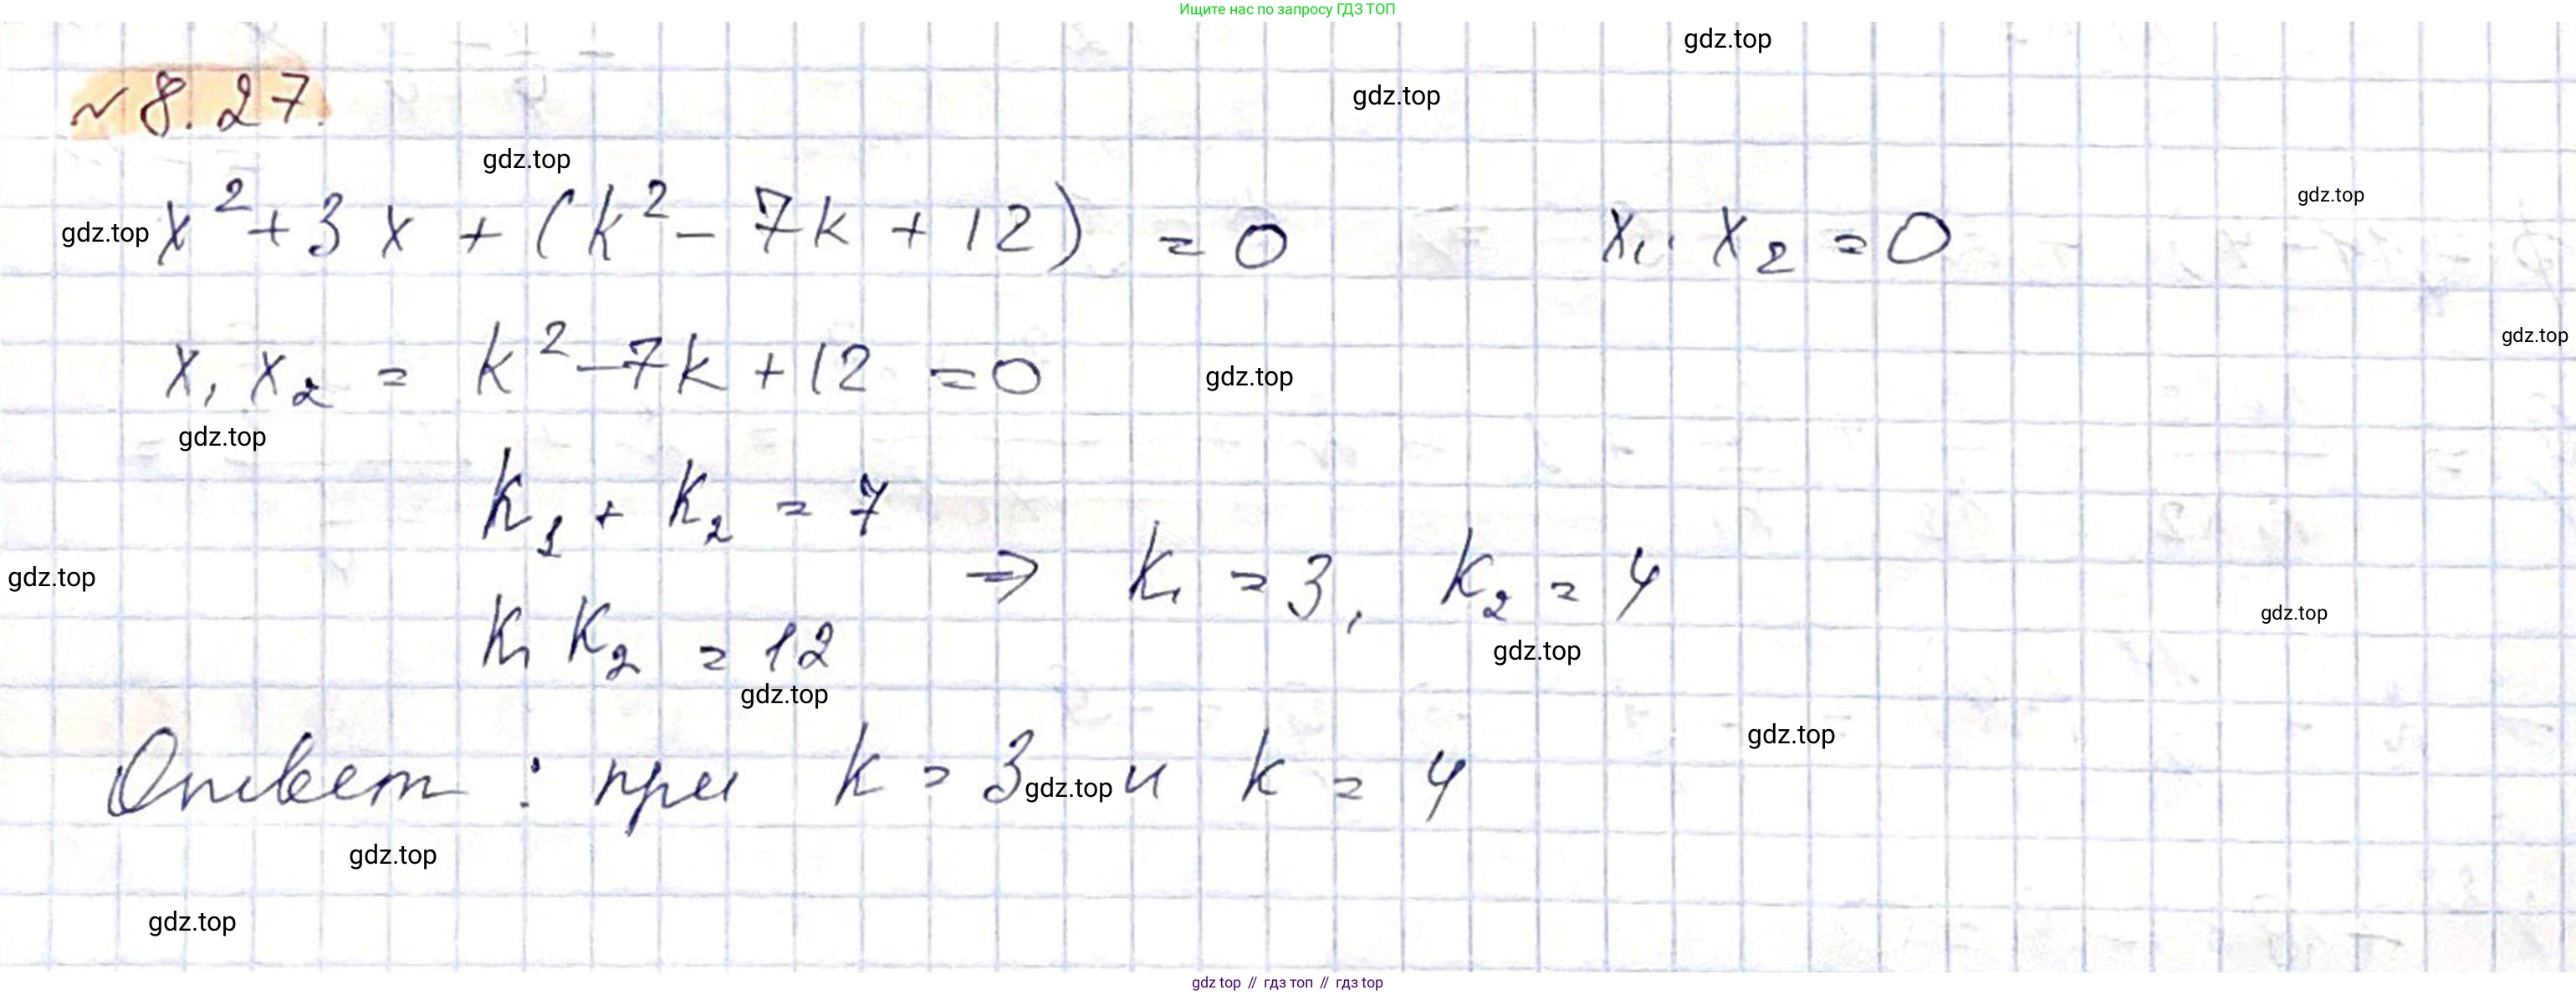 Ищите нас по запросу ГДЗ ТОП
gdz.top
gdz.top
№ 8.27.
gdz.top
gdz.top
x² + 3x + (k² - 7k + 12) = 0    x₁ · x₂ = 0
gdz.top
gdz.top
x₁ x₂ = k² - 7k + 12 = 0
gdz.top
gdz.top
k₁ + k₂ = 7
gdz.top
⇒ k₁ = 3, k₂ = 4
gdz.top
k₁ k₂ = 12
gdz.top
gdz.top
gdz.top
Ответ : при k = 3 и k = 4
gdz.top
gdz.top
gdz.top
gdz top // гдз топ // гдз top